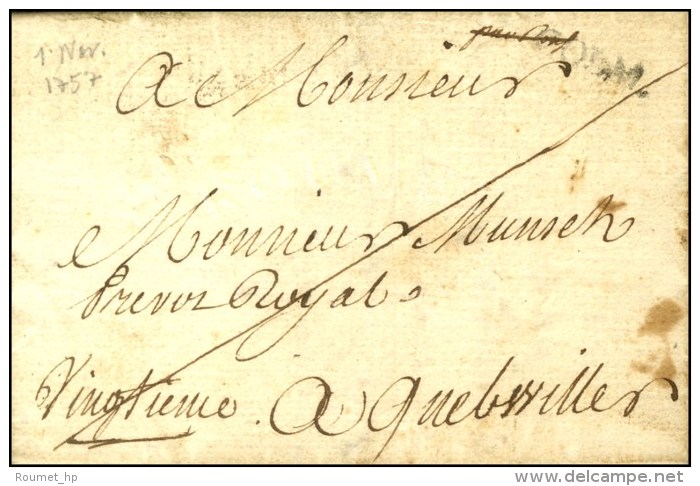 1 Nov.
1757
A Monsieur
Monsieur Munsch
Prevot Royal.
Vingtieme . A Guebwiller
Roumet_hp
© www.delcampe.net